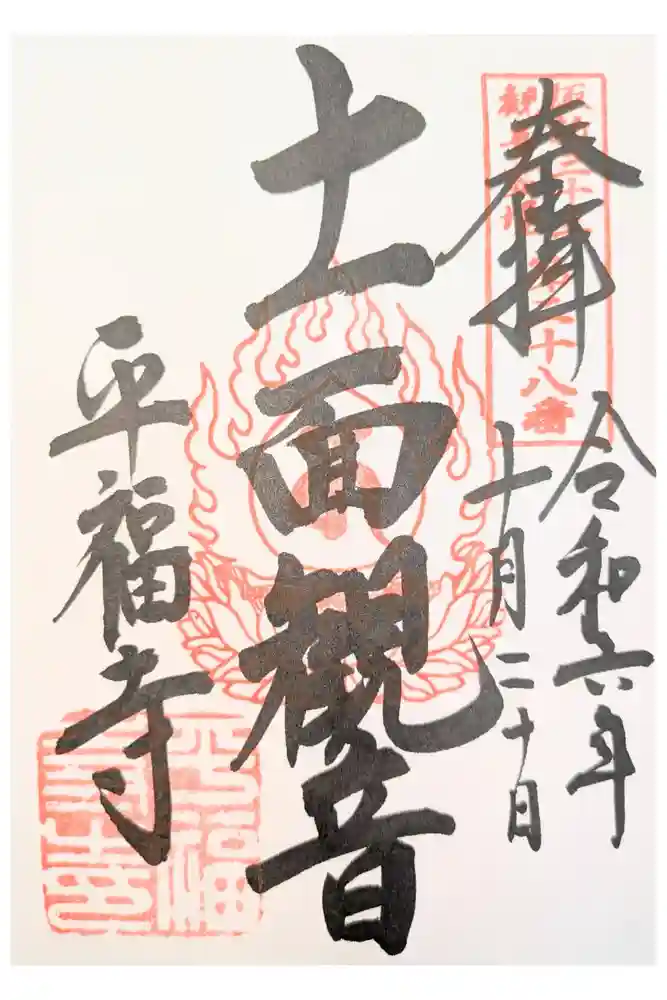 奉拝
十八番
令和六年
十月二十日
十一面観音
平福寺